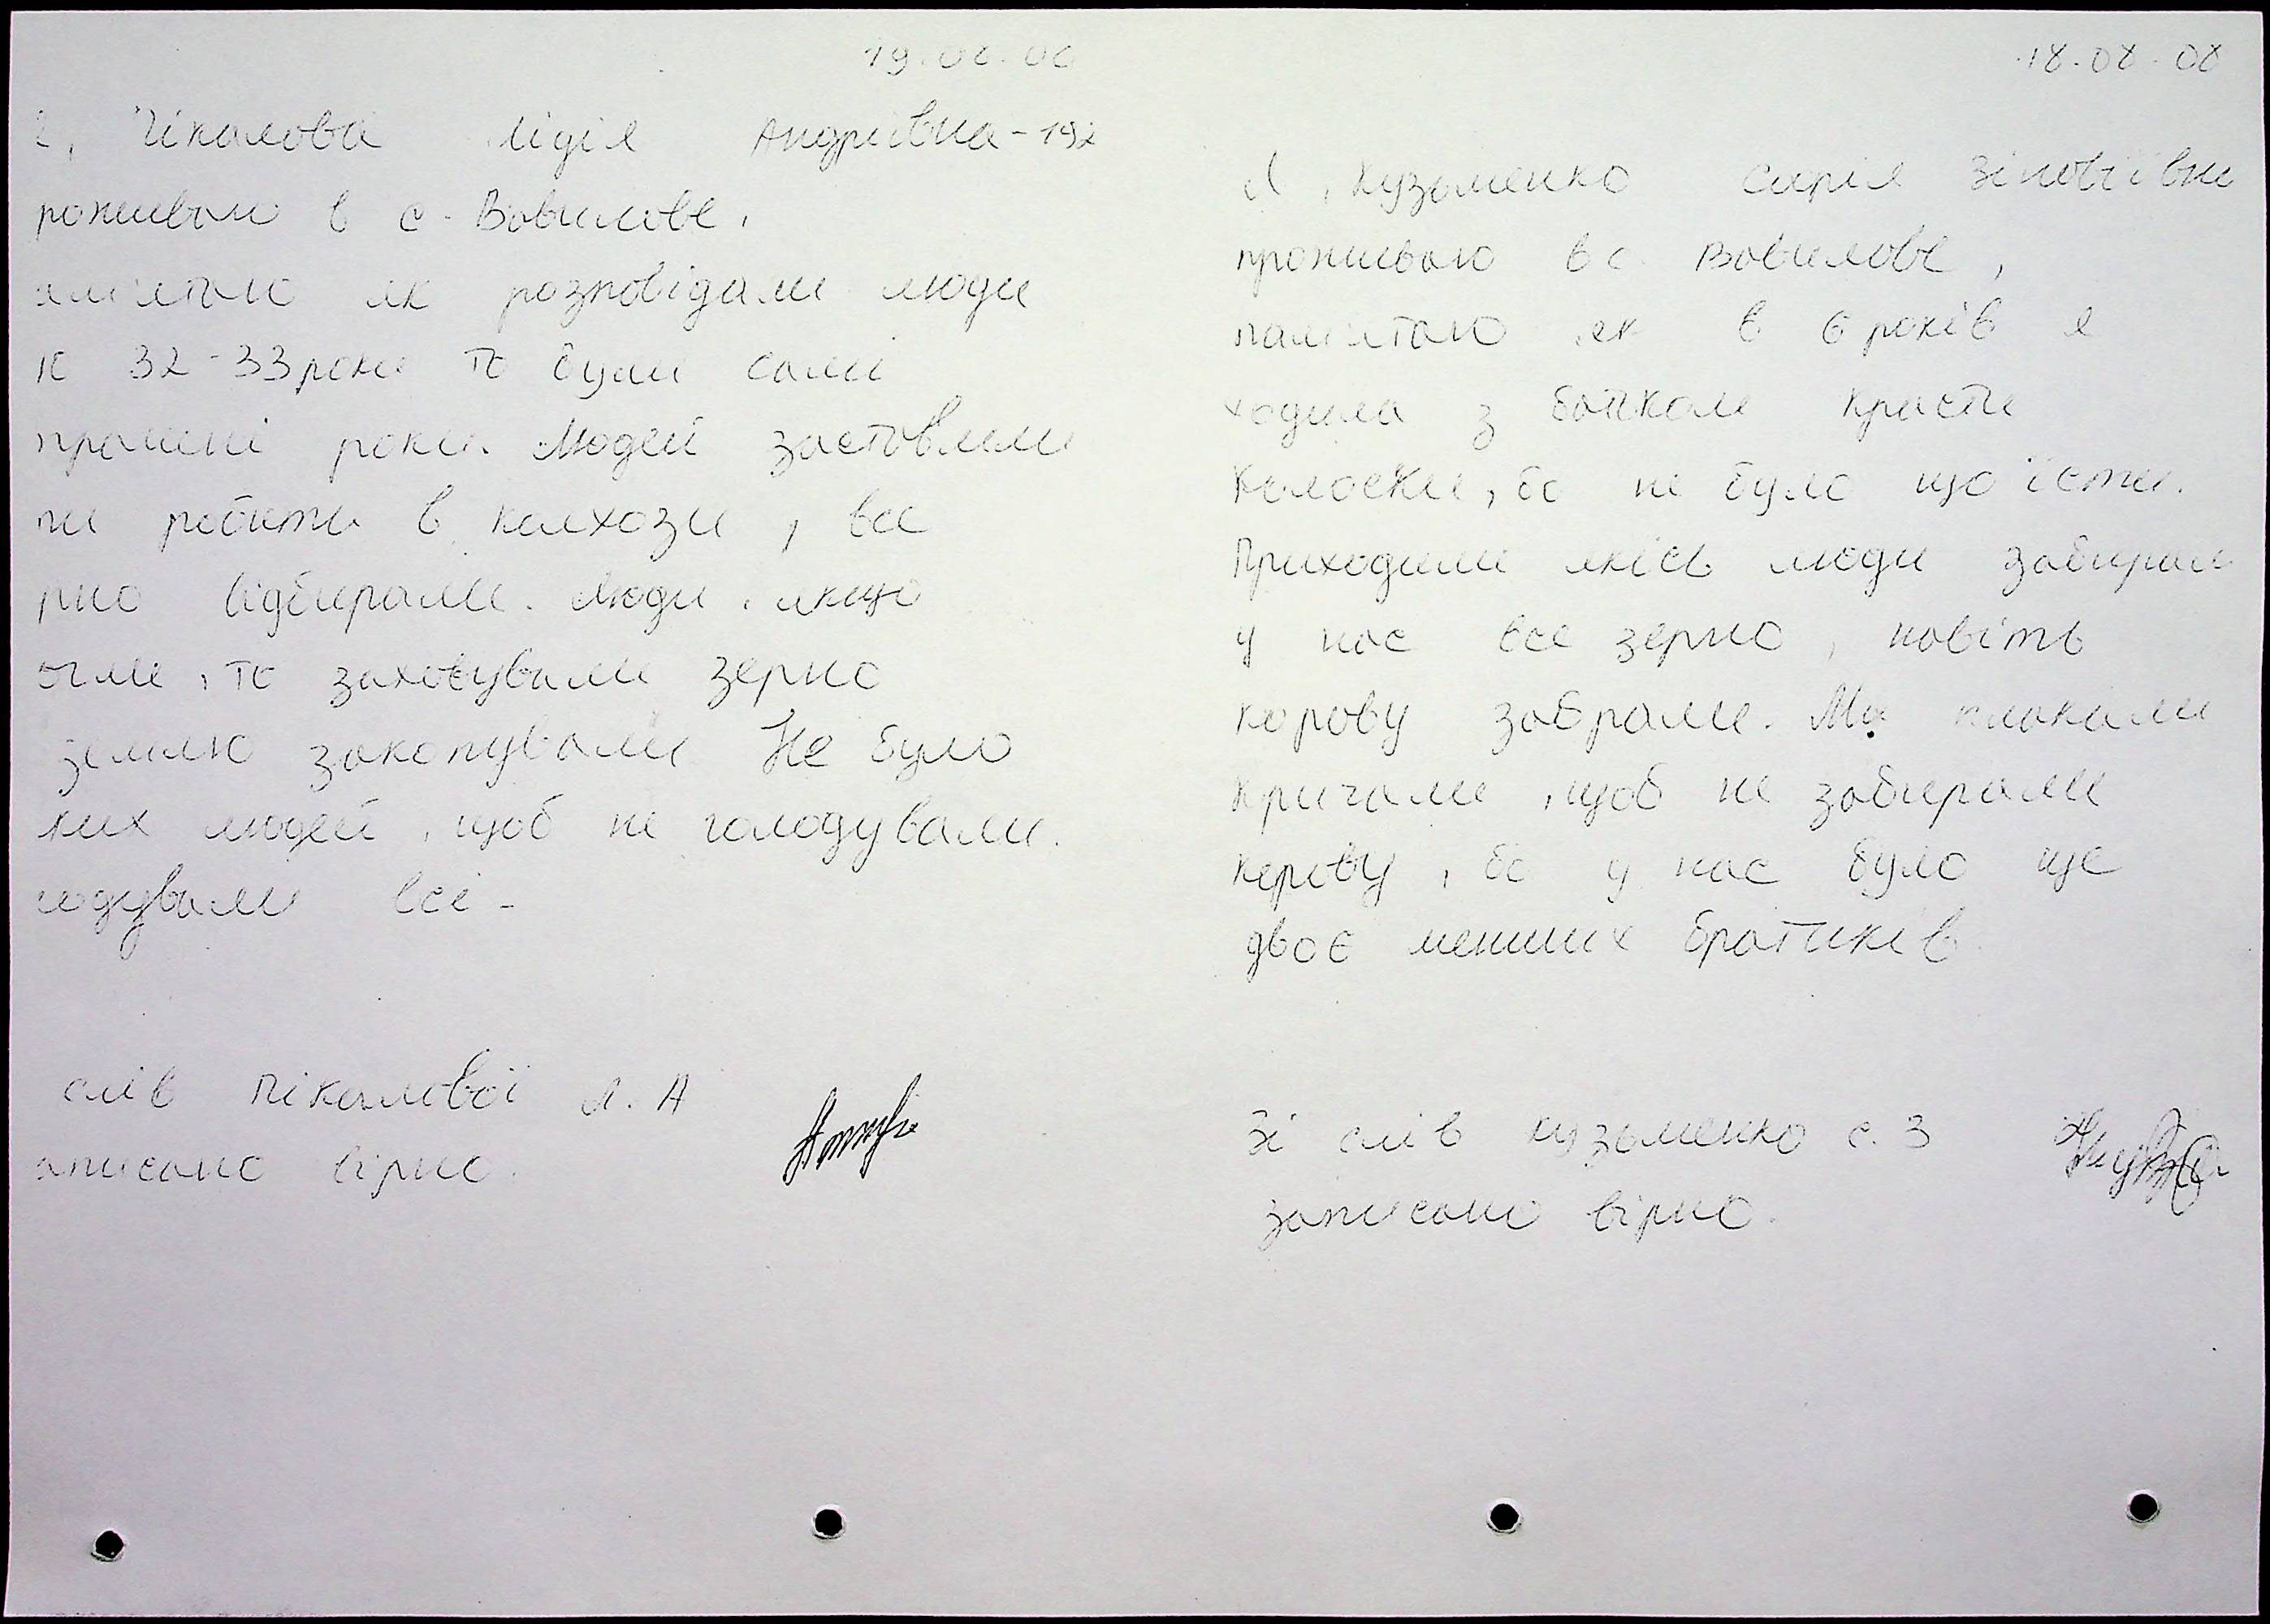 19.08.08
Пікалова Лідія Андріївна - 192
роживаю в с. Вавилове,
ам'ятаю як розповідали люди
32-33 роки то були самі
роки. Людей заставляли
ли робити в колхози, все
рно відбирали. Люди, якщо
огли, то заховували зерно
землю закопували Не було
ких людей, щоб не голодували.
лодували всі.
слів Пікалової Л. А
аписано вірно.
18.08.08
Я, Кузьменко Зіновіївна
проживаю в с. Вавилове,
памʼятаю як в 6 років я
ходила з батьком красти
колоски, бо не було що їсти.
Приходили якісь люди забирали
у нас все зерно, навіть
корову забрали. Ми плакали
кричали, щоб не забирали
корову, бо у нас було ще
двоє менших братиків
Зі слів Кузьменко С. З
записано вірно.